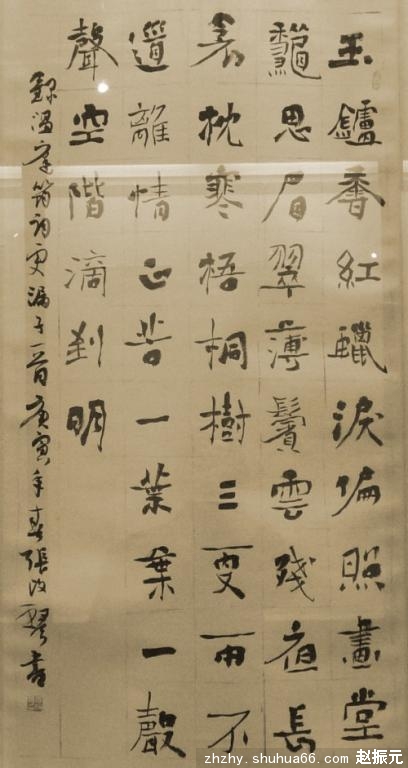 玉鑪香紅蠟淚偏照畫堂
龝思眉翠薄鬢雲殘夜長
衾枕寒梧桐樹三更雨不
道離情正苦一葉葉一聲
聲空階滴到明
錄溫庭筠詞更漏子一首庚寅年春張改琴書
zhzhy.shuhua66.com 赵振元